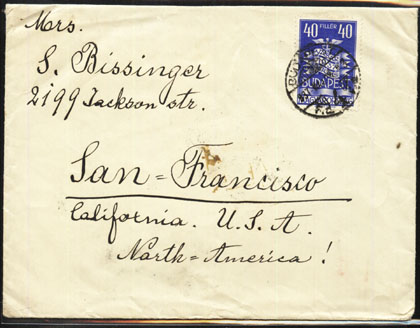 Mrs.
S. Bissinger
2199 Jackson str.
San = Francisco
California. U.S.A.
North = America!
40 FILLÉR 40
BUDAPEST